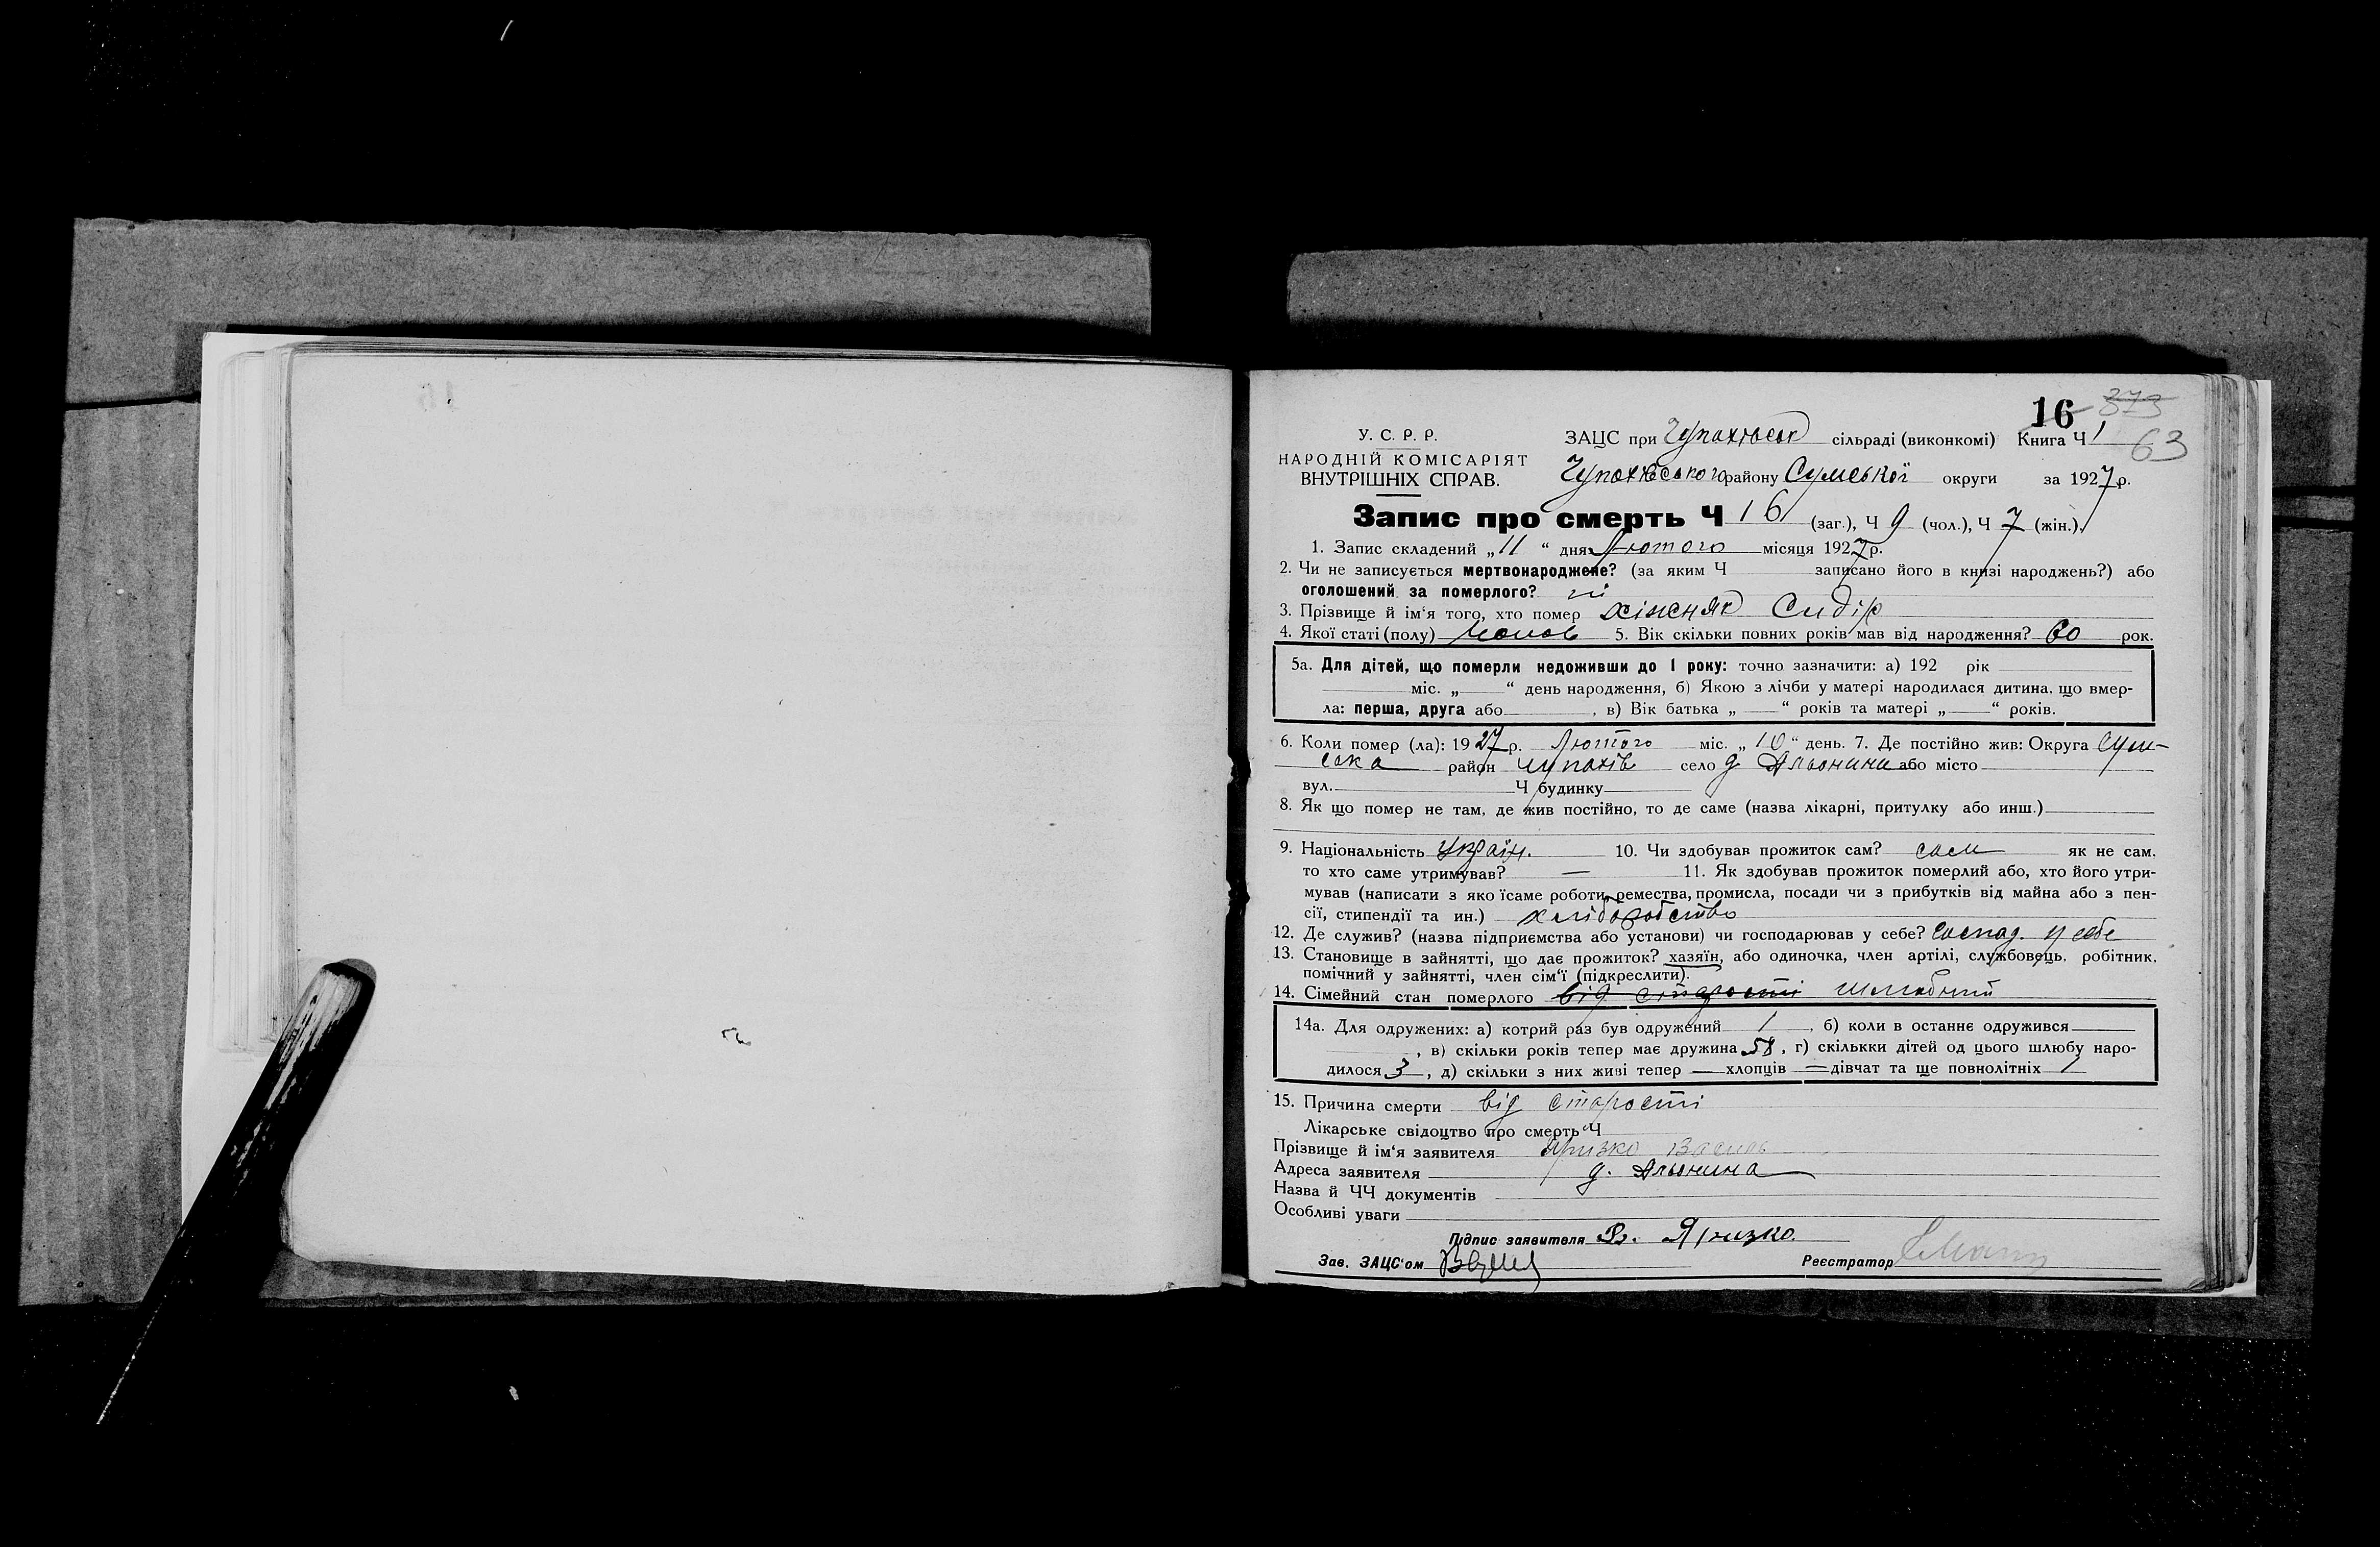 16 373
У. С. Р. Р. ЗАЦС при Чупахівськ сільраді (виконкомі) Книга Ч 1 63
НАРОДНІЙ КОМІСАРІЯТ
ВНУТРІШНІХ СПРАВ. Чупахівського району Сумської округи за 1927 р.
Запис про смерть Ч 16 (заг.), Ч 9 (чол.), Ч 7 (жін.).
1. Запис складений „11“ дня Лютого місяця 1927 р.
2. Чи не записується мертвонароджене? (за яким Ч записано його в книзі народжень?) або
оголошений за померлого? ні
3. Прізвище й ім‘я того, хто помер Хіжняк Сидір
4. Якої статі (полу) чолов 5. Вік скільки повних років мав від народження? 60 рок.
5а. Для дітей, що померли недоживши до 1 року: точно зазначити: а) 192 рік
міс. „ “ день народження, б) Якою з лічби у матері народилася дитина, що вмер-
ла: перша, друга або , в) Вік батька „ “ років та матері „ “ років.
6. Коли помер (ла): 1927 р. Лютого міс. „10“ день. 7. Де постійно жив: Округа Сум-
ська район Чупахів село д Альонина або місто
вул. Ч будинку
8. Як що помер не там, де жив постійно, то де саме (назва лікарні, притулку або инш.)
9. Національність Україн. 10. Чи здобував прожиток сам? сам як не сам,
то хто саме утримував? — 11. Як здобував прожиток померлий або, хто його утри-
мував (написати з яко їсаме роботи, ремества, промисла, посади чи з прибутків від майна або з пен-
сії, стипендії та ин.) хліборобство
12. Де служив? (назва підприємства або установи) чи господарював у себе? Господ. у себе
13. Становище в зайнятті, що дає прожиток? хазяїн, або одиночка, член артілі, службовець, робітник,
помічний у зайнятті, член сім‘ї (підкреслити).
14. Сімейний стан померлого від старости шлюбний
14а. Для одружених: а) котрий раз був одружений 1, б) коли в останнє одружився
, в) скільки років тепер має дружина 58, г) скількки дітей од цього шлюбу наро-
дилося 3, д) скільки з них живі тепер — хлопців — дівчат та ще повнолітніх 1
15. Причина смерти від старости
Лікарське свідоцтво про смерть Ч
Прізвище й ім‘я заявителя Яризко Василь
Адреса заявителя д. Альонина
Назва й ЧЧ документів
Особливі уваги
Підпис заявителя В. Яризко.
Зав. ЗАЦС‘ом Реєстратор